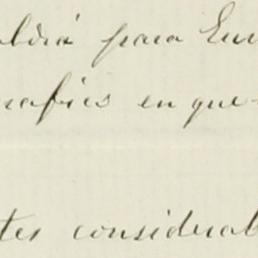 aldrá para Eur
rafies en que-
tes considerab